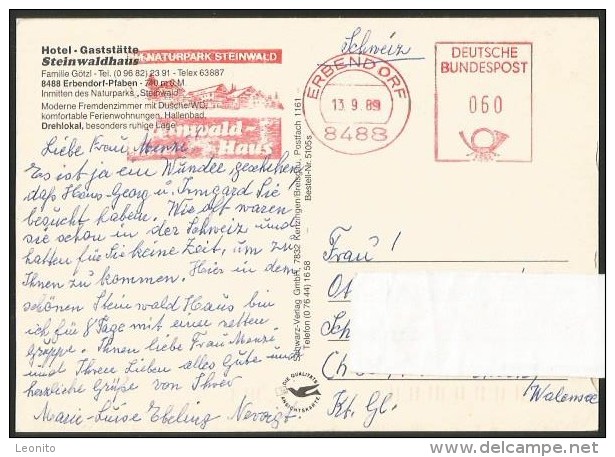 Hotel - Gaststätte
Steinwaldhaus
Familie Götzl - Tel. (0 96 82) 23 91 - Telex 63887
8488 Erbendorf-Pfaben - 720 m ü.M.
Inmitten des Naturparks "Steinwald"
Moderne Fremdenzimmer mit Dusche/WC,
komfortable Ferienwohnungen, Hallenbad,
Drehlokal, besonders ruhige Lage
NATURPARK STEINWALD
Steinwald-
Haus
Schweiz
ERBENDORF
13.9.89
8488
DEUTSCHE
BUNDESPOST
060
Liebe Frau Menzi!
Es ist ja ein Wunder geschehen,
daß Hans-Georg u. Irmgard Sie
besucht haben. Wie oft waren
sie schon in der Schweiz und
hatten für Sie keine Zeit, um zu
Ihnen zu kommen. Hier in dem
schönen Steinwald Haus bin
ich für 8 Tage mit einer netten
Gruppe. Ihnen liebe Frau Menzi
und Ihren Lieben alles Gute und
herzliche Grüße von Ihrer
Marie-Luise Ebeling
Schwarz-Verlag GmbH, 7832 Kenzingen Breisgau, Postfach 1161
Telefon (0 76 44) 16 58 Bestell-Nr. 5105s
DIE QUALITÄTS
ANSICHTSKARTE
Frau!
Ot
Sch
Ch
Walensee
Kt. Gl.
Leonito
www.delcampe.net